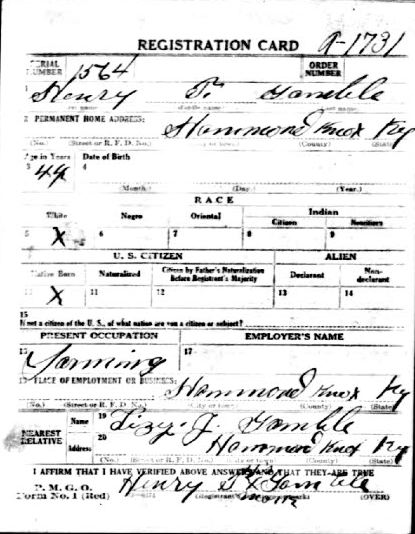 REGISTRATION CARD
SERIAL NUMBER 1564 ORDER NUMBER A-1731
1 Henry T. Gamble
2 PERMANENT HOME ADDRESS: Hammond Knox Ky
(No.) (Street or R. F. D. No.) (City or town) (County) (State)
Age in Years Date of Birth
3 44 4
(Month.) (Day.) (Year.)
RACE
White Negro Oriental Indian
Citizen Noncitizen
5 X 6 7 8 9
U. S. CITIZEN ALIEN
Native Born Naturalized Citizen by Father's Naturalization Before Registrant's Majority Declarant Non-declarant
10 X 11 12 13 14
15
If not a citizen of the U. S., of what nation are you a citizen or subject?
PRESENT OCCUPATION EMPLOYER'S NAME
16 Farming 17
18 PLACE OF EMPLOYMENT OR BUSINESS: Hammond Knox Ky
(No.) (Street or R. F. D. No.) (City or town) (County) (State)
NEAREST RELATIVE Name 19 Lizy. J. Gamble
Address 20 Hammond Knox Ky
(No.) (Street or R. F. D. No.) (City or town) (County) (State)
I AFFIRM THAT I HAVE VERIFIED ABOVE ANSWERS AND THAT THEY ARE TRUE
P. M. G. O.
Form No. 1 (Red) Henry T X Gamble
(Registrant's signature or mark) (OVER)